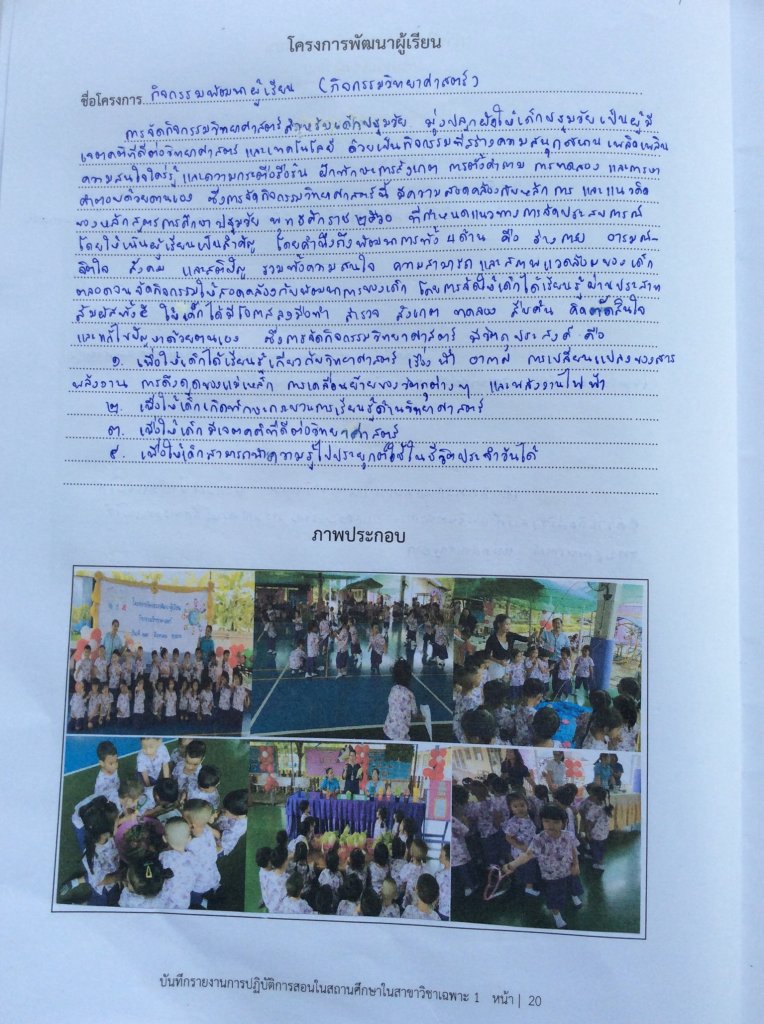 โครงการพัฒนาผู้เรียน
ชื่อโครงการ กิจกรรมพัฒนาผู้เรียน (กิจกรรมวิทยาศาสตร์)
การจัดกิจกรรมวิทยาศาสตร์สำหรับเด็กปฐมวัย มุ่งปลูกฝังให้เด็กปฐมวัยเป็นผู้มี
เจตคติที่ดีต่อวิทยาศาสตร์และเทคโนโลยี ด้วยเป็นกิจกรรมที่สร้างความสนุกสนาน เพลิดเพลิน
ความสนใจใคร่รู้ และความกระตือรือร้น ฝึกทักษะการสังเกต การตั้งคำถาม การทดลอง และการหา
คำตอบด้วยตนเอง ซึ่งการจัดกิจกรรมวิทยาศาสตร์นี้ มีความสอดคล้องกับหลักการ และแนวคิด
ของหลักสูตรการศึกษาปฐมวัย พุทธศักราช ๒๕๖๐ ที่กำหนดแนวทางการจัดประสบการณ์
โดยให้เน้นผู้เรียนเป็นสำคัญ โดยคำนึงถึงพัฒนาการทั้ง ๔ ด้าน คือ ร่างกาย อารมณ์-
จิตใจ สังคม และสติปัญญา รวมทั้งความสนใจ ความสามารถ และสภาพแวดล้อมของเด็ก
ตลอดจนจัดกิจกรรมให้สอดคล้องกับพัฒนาการของเด็ก โดยการจัดให้เด็กได้เรียนรู้ผ่านประสาท
สัมผัสทั้ง ๕ ให้เด็กได้มีโอกาสลงมือทำ สำรวจ สังเกต ทดลอง สืบค้น คิดตัดสินใจ
และแก้ไขปัญหาด้วยตนเอง ซึ่งการจัดกิจกรรมวิทยาศาสตร์ มีวัตถุประสงค์ คือ
๑. เพื่อให้เด็กได้เรียนรู้เกี่ยวกับวิทยาศาสตร์ เรื่อง น้ำ อากาศ การเปลี่ยนแปลงของสาร
พลังงาน การดึงดูดของแม่เหล็ก การเคลื่อนย้ายของวัตถุต่าง ๆ และพลังงานไฟฟ้า
๒. เพื่อให้เด็กเกิดทักษะกระบวนการเรียนรู้ด้านวิทยาศาสตร์
๓. เพื่อให้เด็กมีเจตคติที่ดีต่อวิทยาศาสตร์
๔. เพื่อให้เด็กสามารถนำความรู้ไปประยุกต์ใช้ในชีวิตประจำวันได้
ภาพประกอบ
บันทึกรายงานการปฏิบัติการสอนในสถานศึกษาในสาขาวิชาเฉพาะ 1 หน้า | 20